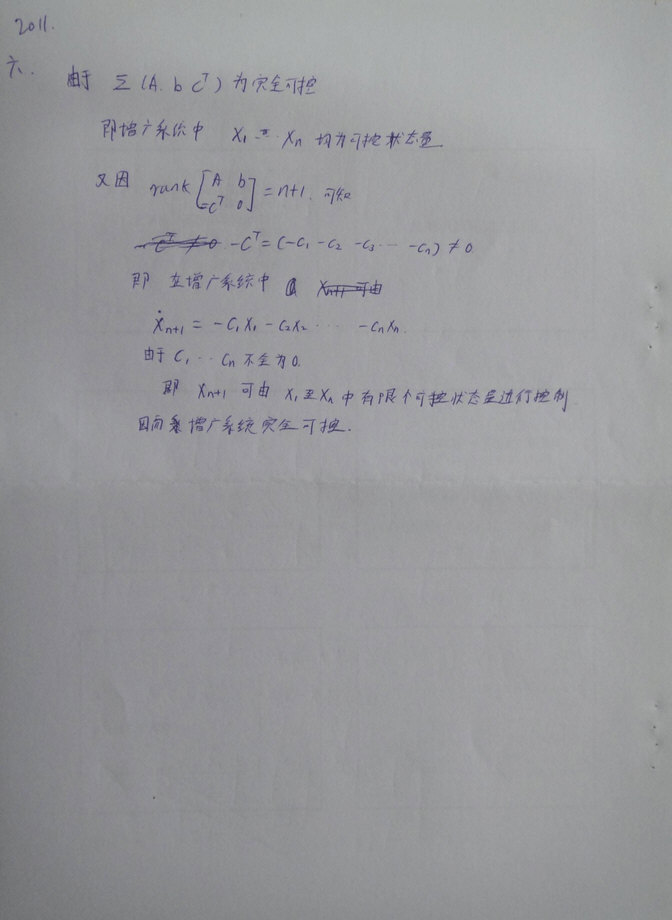 2011.
六.
由于 Σ(A. b C^T) 为完全可控
即增广系统中 X₁ 至 Xn 均为可控状态量
又因 rank [A b; -C^T 0] = n+1. 可知
-C^T ≠ 0 -C^T = (-C₁ -C₂ -C₃ ... -Cn) ≠ 0.
即 在增广系统中 Xn+1 可由
Ẋn+1 = -C₁X₁ -C₂X₂ ... -CnXn.
由于 C₁ ... Cn 不全为0.
即 Xn+1 可由 X₁至Xn 中有限个可控状态量进行控制
因而 增广系统完全可控.